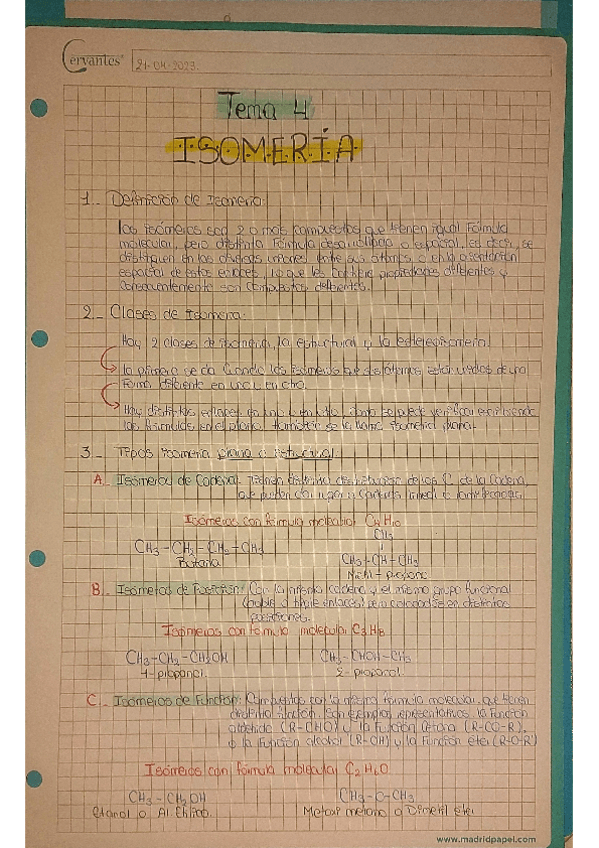 Cervantes
21-04-2023.
Tema 4
ISOMERÍA
1.- Definición de Isomería:
Los isómeros son 2 o más compuestos que tienen igual Fórmula
molecular, pero distinta Fórmula desarrollada o espacial, es decir, se
distinguen en las diversas uniones entre sus átomos o en la orientación
espacial de estos enlaces, lo que les confiere propiedades diferentes y
consecuentemente son compuestos diferentes.
2.- Clases de Isomería:
Hay 2 clases de isomería, la estructural y la estereoisomería.
La primera se da cuando los isómeros sus átomos están unidos de una
forma diferente en uno u en otro.
Hay distintos enlaces en uno u en otro, se puede verificar escribiendo
las fórmulas en el plano, también se la llama isomería plana.
3.- Tipos isomería plana o estructural:
A. Isómeros de Cadena: Tienen distinta distribución de los C de la cadena,
que pueden dar lugar a cadenas
Isómeros con fórmula molecular C4H10
CH3-CH2-CH2-CH3
Butano
CH3
CH3-CH-CH3
Metil-propano
B. Isómeros de Posición: Con la misma cadena y el mismo grupo funcional
(doble o triple enlaces) pero colocados en distintas
posiciones.
Isómeros con fórmula molecular C3H8
CH3-CH2-CH2OH
1-propanol
CH3-CHOH-CH3
2-propanol
C. Isómeros de Función: Compuestos con la misma fórmula molecular, que tienen
distinta función. Son ejemplos representativos la Función
aldehido (R-CHO) y la Función Cetona (R-CO-R),
o la Función alcohol (R-OH) y la Función eter (R-O-R')
Isómeros con fórmula molecular C2H6O
CH3-CH2OH
Etanol o Al. Etílico.
CH3-O-CH3
Metoxi metano o Dimetil eter
www.madridpapel.com